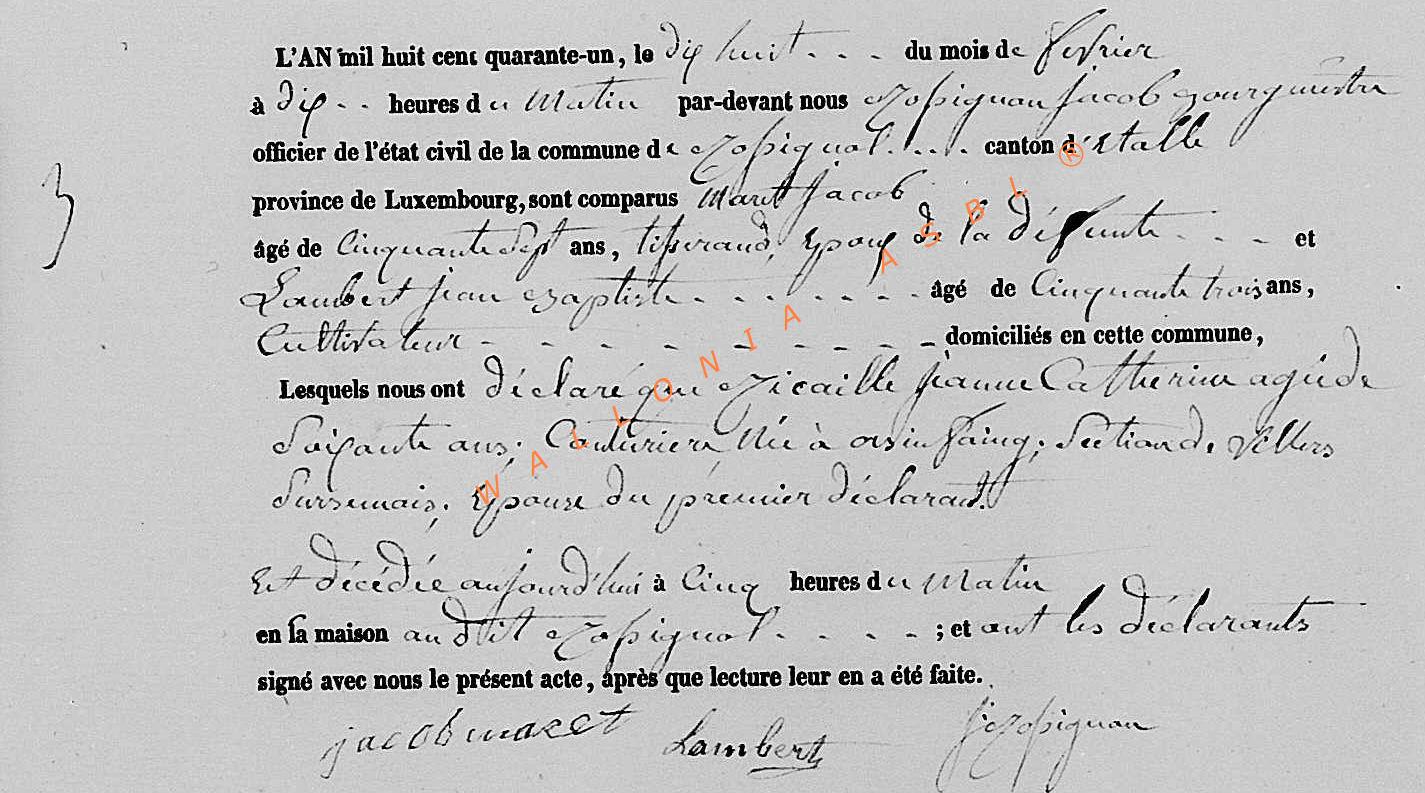 L'AN mil huit cent quarante-un, le dix huit - - - du mois de fevrier
à dix - - heures du Matin par-devant nous Rossignon jacob Bourgmestre
officier de l'état civil de la commune de Rossignol - - - - canton d'Etalle
province de Luxembourg, sont comparus Maret jacob
âgé de Cinquante Sept ans, tisserand, Epoux de la défunte - - - et
Lambert jean Baptiste - - - - - - - âgé de Cinquante trois ans,
Cultivateur - - - - - - - - - domiciliés en cette commune,
3
Lesquels nous ont déclaré que Ricaille jeanne Catherine agée de
Soixante ans; Couturiere Née à orsinfaing; Section de Villers
Sursemois; Epouse du premier déclarant.
Est décédée aujourd'hui à Cinq heures du Matin
en sa maison audit Rossignol - - - - ; et ont les déclarants
signé avec nous le présent acte, après que lecture leur en a été faite.
jacob maret Lambert J Rossignon
WALLONIA ASBL ®